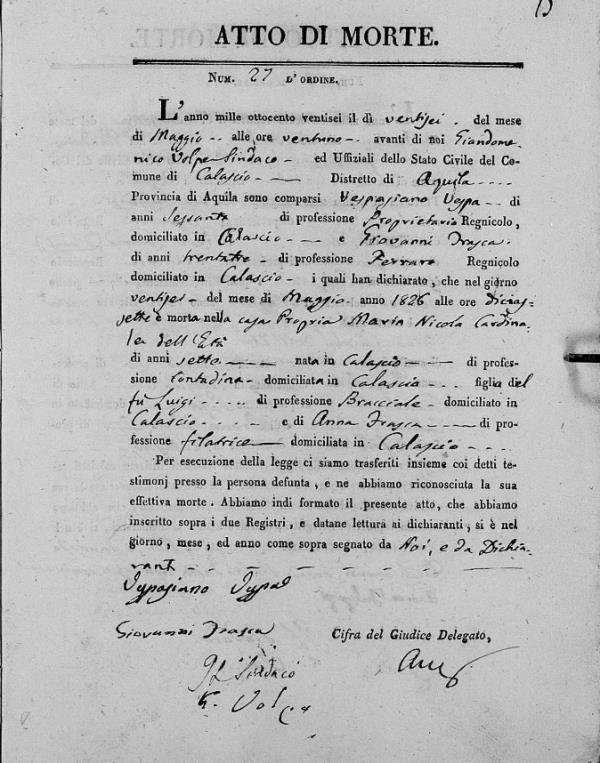 13
ATTO DI MORTE.
Num. 27 d'ordine.
L'anno mille ottocento ventisei il dì ventisei . del mese
di Maggio alle ore ventuno avanti di noi Giandome-
nico Volpe Sindaco ed Uffiziali dello Stato Civile del Co-
mune di Calascio Distretto di Aquila
Provincia di Aquila sono comparsi Vespasiano Vespa di
anni Sessanta di professione Proprietario Regnicolo,
domiciliato in Calascio e Giovanni Frasca
di anni trentatre di professione Ferraro Regnicolo
domiciliato in Calascio i quali han dichiarato, che nel giorno
ventisei del mese di Maggio anno 1826 alle ore dicias-
sette è morta nella casa Propria Maria Nicola Cardina-
le dell'Età
di anni sette nata in Calascio di profes-
sione Contadina domiciliata in Calascio figlia del
fù Luigi di professione Bracciale domiciliato in
Calascio e di Anna Frasca di pro-
fessione filatrice domiciliata in Calascio
Per esecuzione della legge ci siamo trasferiti insieme coi detti te-
stimonj presso la persona defunta, e ne abbiamo riconosciuta la sua
effettiva morte. Abbiamo indi formato il presente atto, che abbiamo
inscritto sopra i due Registri, e datane lettura ai dichiaranti, si è nel
giorno, mese, ed anno come sopra segnato da Noi, e da Dichia-
ranti
Giovanni Frasca Cifra del Giudice Delegato,
Il Sindaco
Volpe